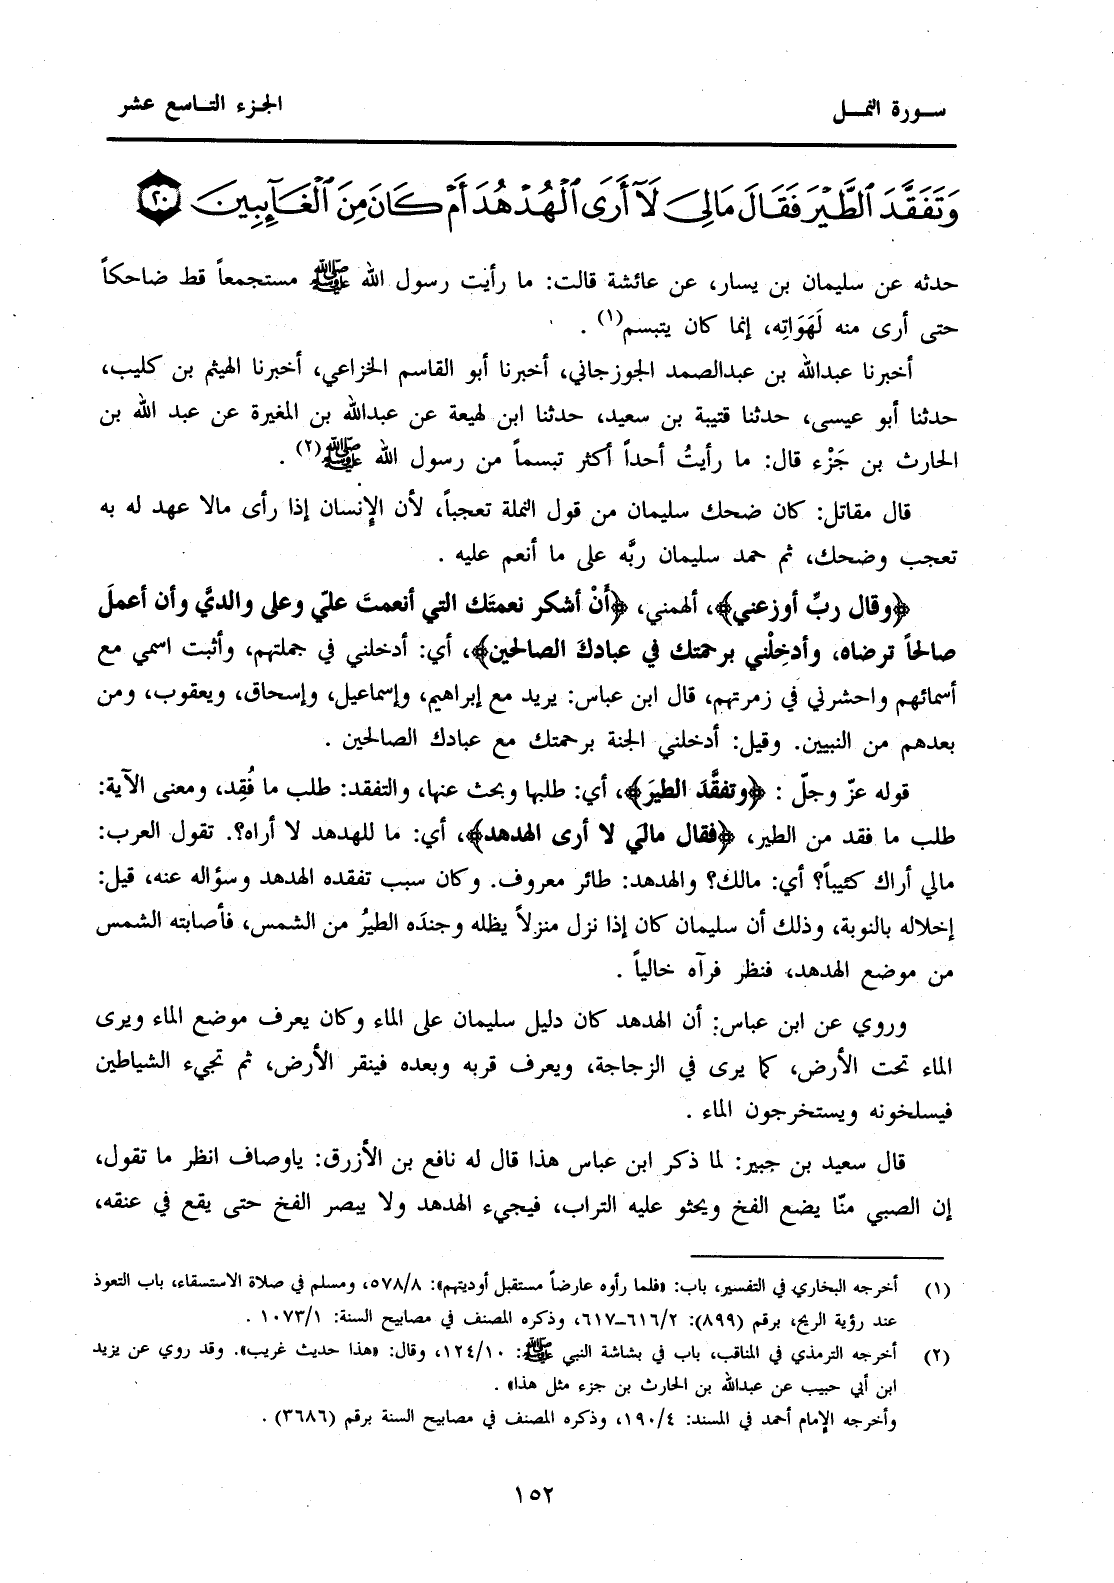 سورة النمل
الجزء التاسع عشر
وَتَفَقَّدَ ٱلطَّيْرَ فَقَالَ مَالِىَ لَآ أَرَى ٱلْهُدْهُدَ أَمْ كَانَ مِنَ ٱلْغَآئِبِينَ ٢٠
حدثه عن سليمان بن يسار، عن عائشة قالت: ما رأيت رسول الله ﷺ مستجمعاً قط ضاحكاً
حتى أرى منه لَهَوَاتِه، إنما كان يتبسم(١) .
أخبرنا عبدالله بن عبدالصمد الجوزجاني، أخبرنا أبو القاسم الخزاعي، أخبرنا الهيثم بن كليب،
حدثنا أبو عيسى، حدثنا قتيبة بن سعيد، حدثنا ابن لهيعة عن عبدالله بن المغيرة عن عبد الله بن
الحارث بن جَزْء قال: ما رأيتُ أحداً أكثر تبسماً من رسول الله ﷺ(٢) .
قال مقاتل: كان ضحك سليمان من قول النملة تعجباً، لأن الإنسان إذا رأى مالا عهد له به
تعجب وضحك، ثم حمد سليمان ربَّه على ما أنعم عليه .
﴿وقال ربِّ أوزعني﴾، ألهمني، ﴿أَنْ أشكر نعمتَك التي أنعمتَ عليّ وعلى والديَّ وأن أعملَ
صالحاً ترضاه، وأدخِلْني برحمتك في عبادكَ الصالحين﴾، أي: أدخلني في جملتهم، وأثبت اسمي مع
أسمائهم واحشرني في زمرتهم، قال ابن عباس: يريد مع إبراهيم، وإسماعيل، وإسحاق، ويعقوب، ومن
بعدهم من النبيين. وقيل: أدخلني الجنة برحمتك مع عبادك الصالحين .
قوله عزّ وجلّ : ﴿وتفقَّدَ الطيرَ﴾، أي: طلبها وبحث عنها، والتفقد: طلب ما فُقِد، ومعنى الآية:
طلب ما فقد من الطير، ﴿فقال ماليَ لا أرى الهدهد﴾، أي: ما للهدهد لا أراه؟. تقول العرب:
مالي أراك كئيباً؟ أي: مالك؟ والهدهد: طائر معروف. وكان سبب تفقده الهدهد وسؤاله عنه، قيل:
إخلاله بالنوبة، وذلك أن سليمان كان إذا نزل منزلاً يظله وجندَه الطيرُ من الشمس، فأصابته الشمس
من موضع الهدهد، فنظر فرآه خالياً .
وروي عن ابن عباس: أن الهدهد كان دليل سليمان على الماء وكان يعرف موضع الماء ويرى
الماء تحت الأرض، كما يرى في الزجاجة، ويعرف قربه وبعده فينقر الأرض، ثم تجيء الشياطين
فيسلخونه ويستخرجون الماء .
قال سعيد بن جبير: لما ذكر ابن عباس هذا قال له نافع بن الأزرق: ياوصاف انظر ما تقول،
إن الصبي منّا يضع الفخ ويحثو عليه التراب، فيجيء الهدهد ولا يبصر الفخ حتى يقع في عنقه،
(١) أخرجه البخاري في التفسير، باب: «فلما رأوه عارضاً مستقبل أوديتهم»: ٥٧٨/٨، ومسلم في صلاة الاستسقاء، باب التعوذ
عند رؤية الريح، برقم (٨٩٩): ٦١٦/٢ـ٦١٧، وذكره المصنف في مصابيح السنة: ١٠٧٣/١ .
(٢) أخرجه الترمذي في المناقب، باب في بشاشة النبي ﷺ: ١٢٤/١٠، وقال: «هذا حديث غريب». وقد روي عن يزيد
ابن أبي حبيب عن عبدالله بن الحارث بن جزء مثل هذا» .
وأخرجه الإمام أحمد في المسند: ١٩٠/٤، وذكره المصنف في مصابيح السنة برقم (٣٦٨٦) .
١٥٢